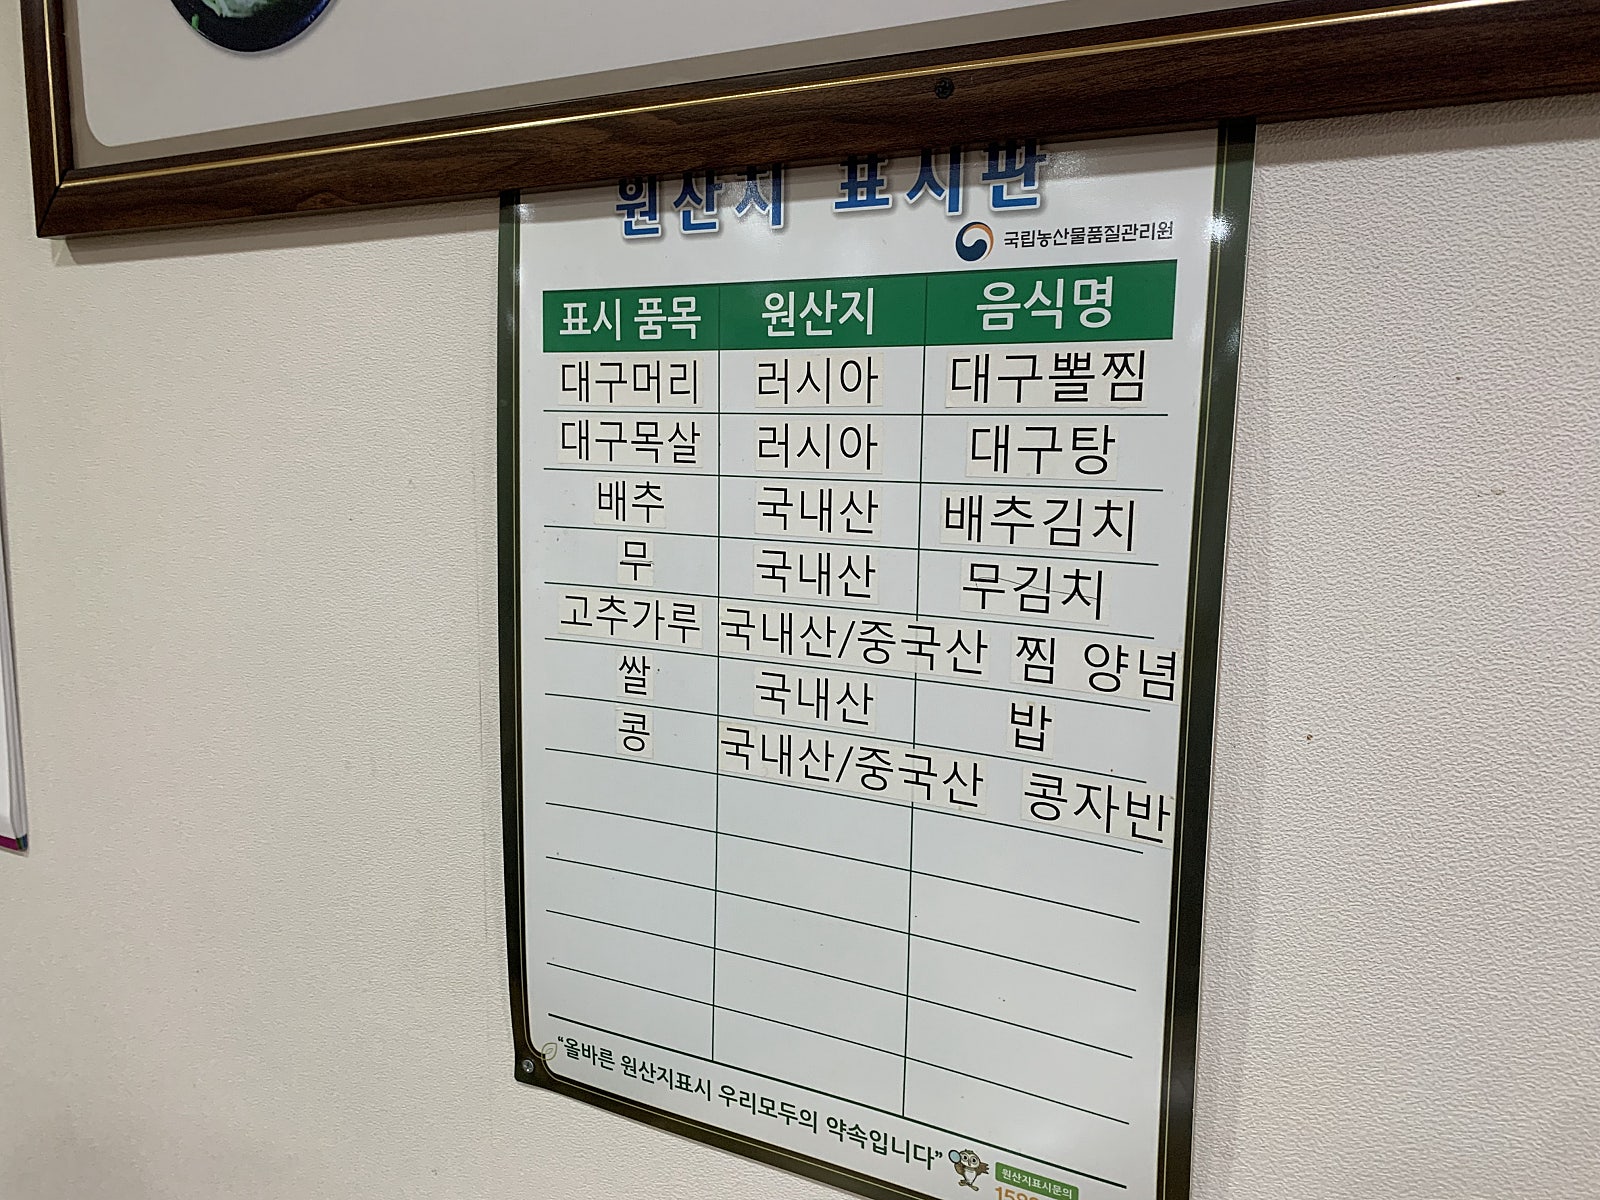 원산지 표시판
국립농산물품질관리원
표시 품목 원산지 음식명
대구머리 러시아 대구뽈찜
대구목살 러시아 대구탕
배추 국내산 배추김치
무 국내산 무김치
고추가루 국내산/중국산 찜 양념
쌀 국내산 밥
콩 국내산/중국산 콩자반
"올바른 원산지표시 우리모두의 약속입니다"
원산지표시문의